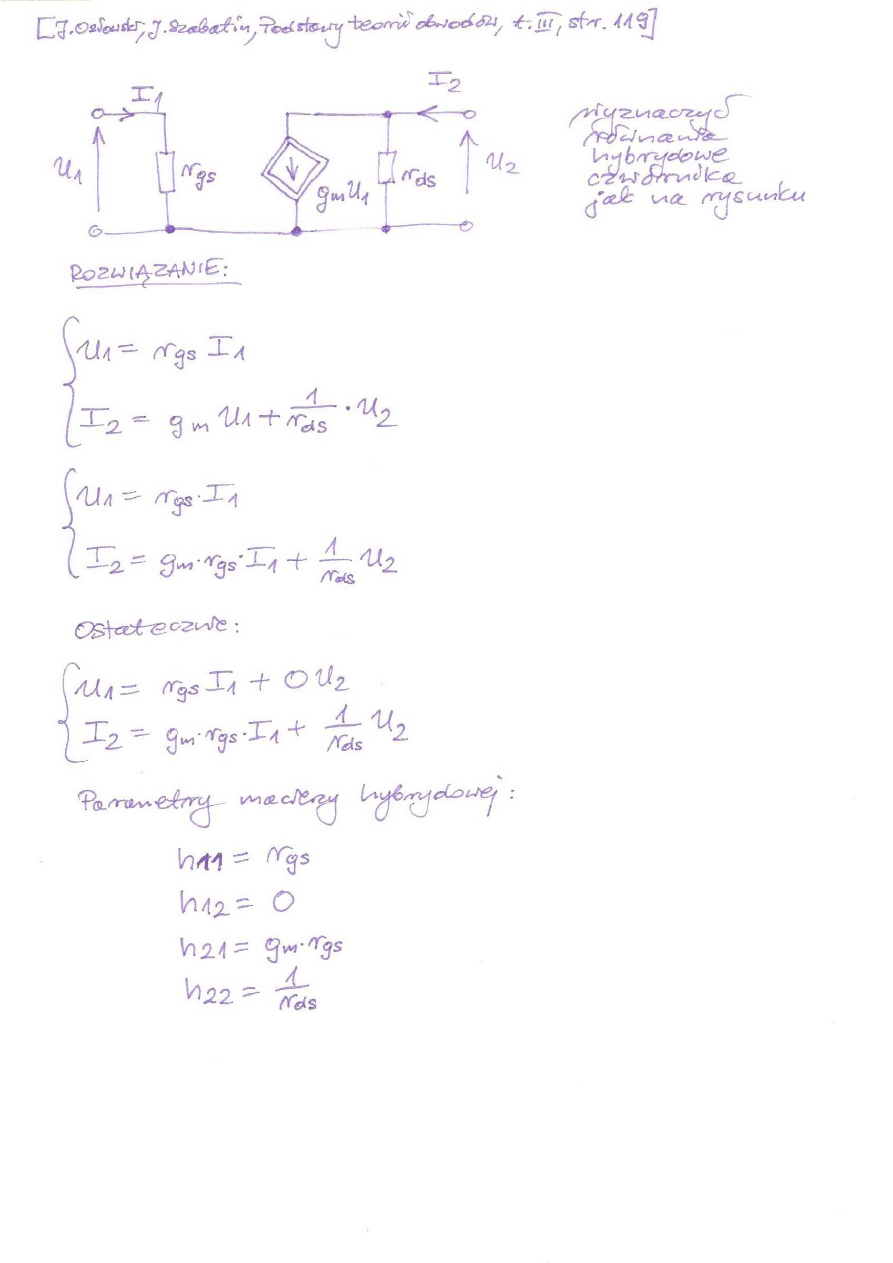 [J. Osiowski, J. Szabatin, Podstawy teorii obwodów, t. III, str. 119]
I1
I2
U1
rgs
gmU1
rds
U2
wyznaczyć
równania
hybrydowe
czwórnika
jak na rysunku
ROZWIĄZANIE:
U1 = rgs I1
I2 = gm U1 + 1/rds · U2
U1 = rgs · I1
I2 = gm · rgs · I1 + 1/rds U2
Ostatecznie:
U1 = rgs I1 + 0 U2
I2 = gm · rgs · I1 + 1/rds U2
Parametry macierzy hybrydowej:
h11 = rgs
h12 = 0
h21 = gm · rgs
h22 = 1/rds